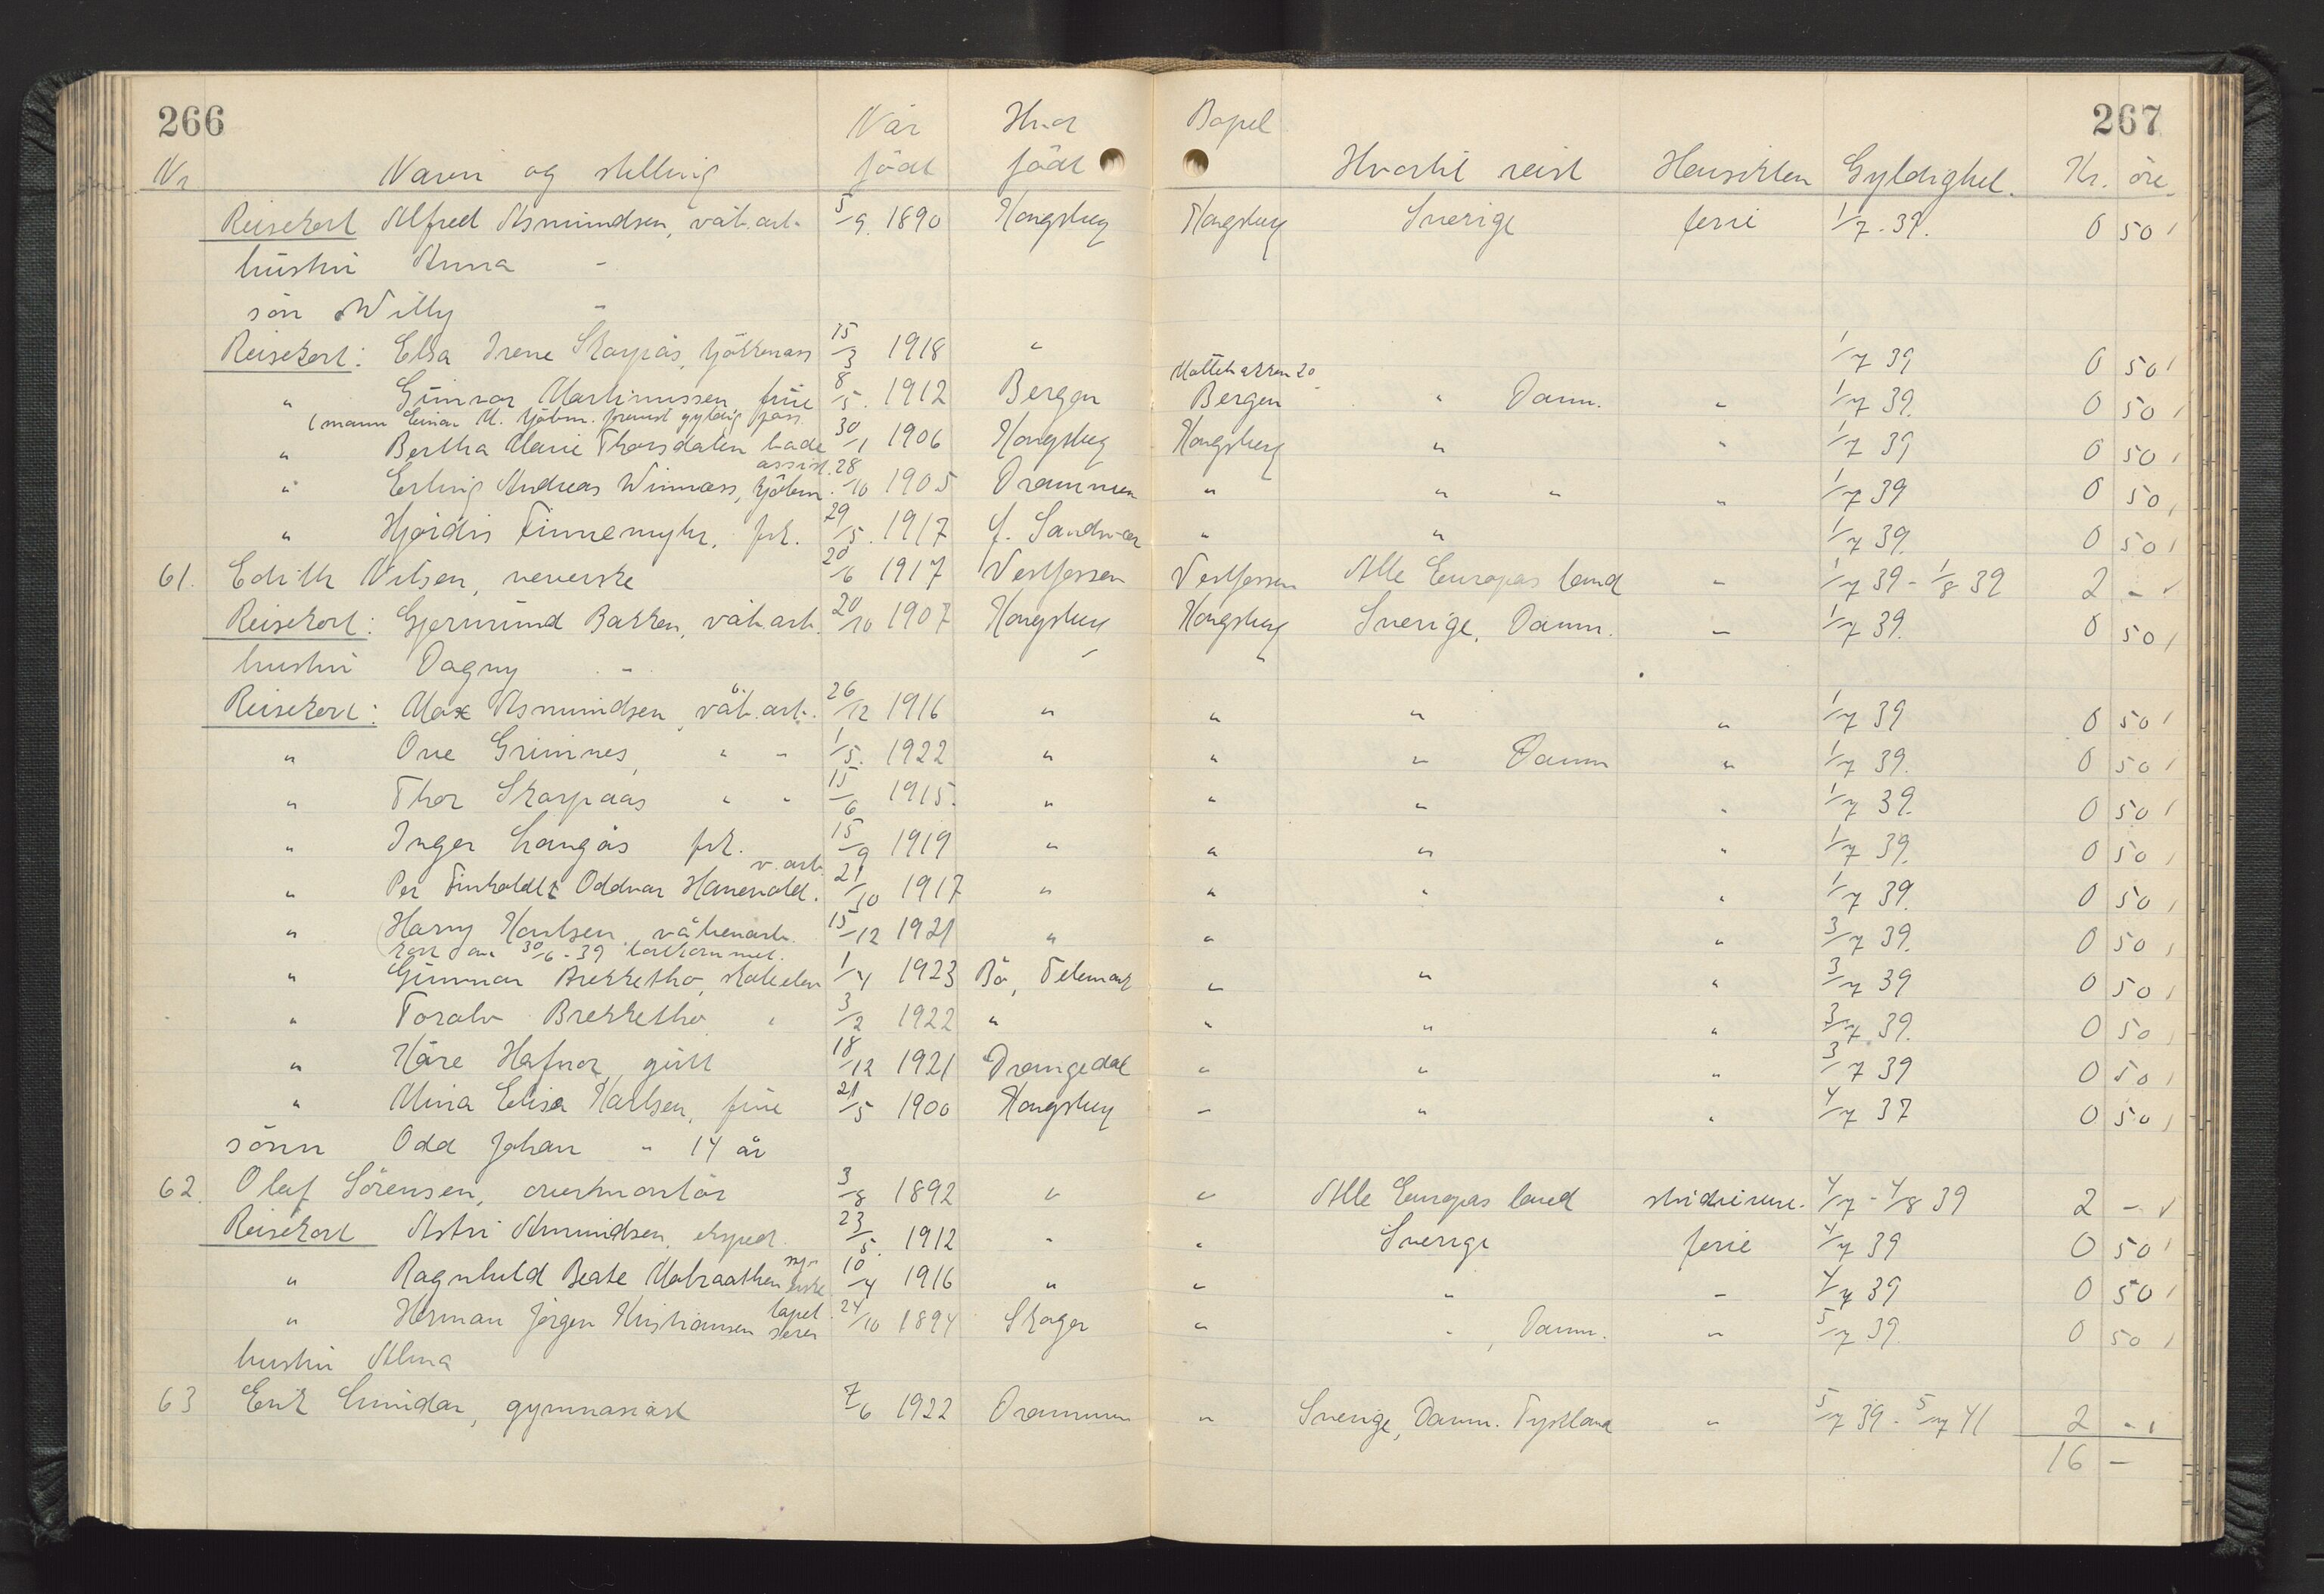 266 267
Når Hvor Bopel
Nr Navn og stilling född född Hvortil reist Hensikten Gyldighet. Kr. öre.
Reisekort Alfred Asmundsen, våb.arb. 5/9. 1890 Kongsberg Kongsberg Sverige ferie 1/7. 39. 0 50
hustru Anna -
sön Willy "
Reisekort: Elsa Irene Skarpås, kjökkenass 15/3 1918 " 1/7 39 0 50
Bergen
" Gunvor Martinussen, frue 8/5. 1912 Bergen " Danm. " 1/7 39. 0 50
(mann Einar M. kjöbm. forevist gyldig pass
" Bertha Marie Thorsdalen bade 30/1 1906 Kongsberg Kongsberg " " 1/7 39 0 50
assist.
" Erling Andreas Winnæss, kjöbm. 28/10 1905 Drammen " " " " 1/7 39 0 50
" Hjördis Finnemyhr, frk. 29/5. 1917 Y. Sandsvær " " 1/7 39. 0 50
61. Edith Nilsen, veverske 20/6 1917 Vestfossen Vestfossen Alle Europas land " 1/7 39 - 1/8 39 2 -
Reisekort: Gjermund Bakken, våb.arb. 20/10 1907 Kongsberg Kongsberg Sverige, Danm. " 1/7 39. 0 50
hustru Dagny - " "
Reisekort: Max Asmundsen, våb.arb. 26/12 1916 " " " " 1/7 39 0 50
" Ove Grimnes, " " 1/5. 1922 " " " Danm " 1/7 39. 0 50
" Thor Skarpaas " " 15/6 1915. " " " " 1/7 39. 0 50
" Inger Langås frk. 15/9 1919 " " " " 1/7 39. 0 50
v. arb.
" Per Oddvar Hanevold. 21/10 1917 " " " " 1/7 39. 0 50
" Harry Karlsen, våbenarb. 15/12 1921 " " " 3/7 39. 0 50
30/6 - 39 bortkommet.
" Gunnar Brekketho, skoleelev 1/4 1923 Bö, Telemark " " " 3/7 39 0 50
" Toralv Brekketho " 3/2 1922 " " " " 3/7 39. 0 50
" Kåre Hafnor, gutt 18/12 1921 Drangedal " " " 3/7 39 0 50
" Mina Elisa Karlsen, frue 21/5 1900 Kongsberg " " " 4/7 37 0 50
sönn Odd Johan " 14 år
62. Olaf Sörensen, overmontör 3/8 1892 " " Alle Europas land studiereise. 4/7 - 4/8 39 2 -
Reisekort Astri Amundsen, exped. 23/5. 1912 " " Sverige ferie 4/7 39 0 50
" Ragnhild Beate syerske 10/4 1916 " " " " 4/7 39 0 50
" Herman Jörgen Kristiansen tapetserer 24/10 1894 Skoger " ", Danm. " 5/7 39. 0 50
hustru Alma
63 Erik gymnasiast 7/6 1922 Drammen " Sverige, Danm. Tyskland " 5/7 39 - 5/7 41 2 -
16 -